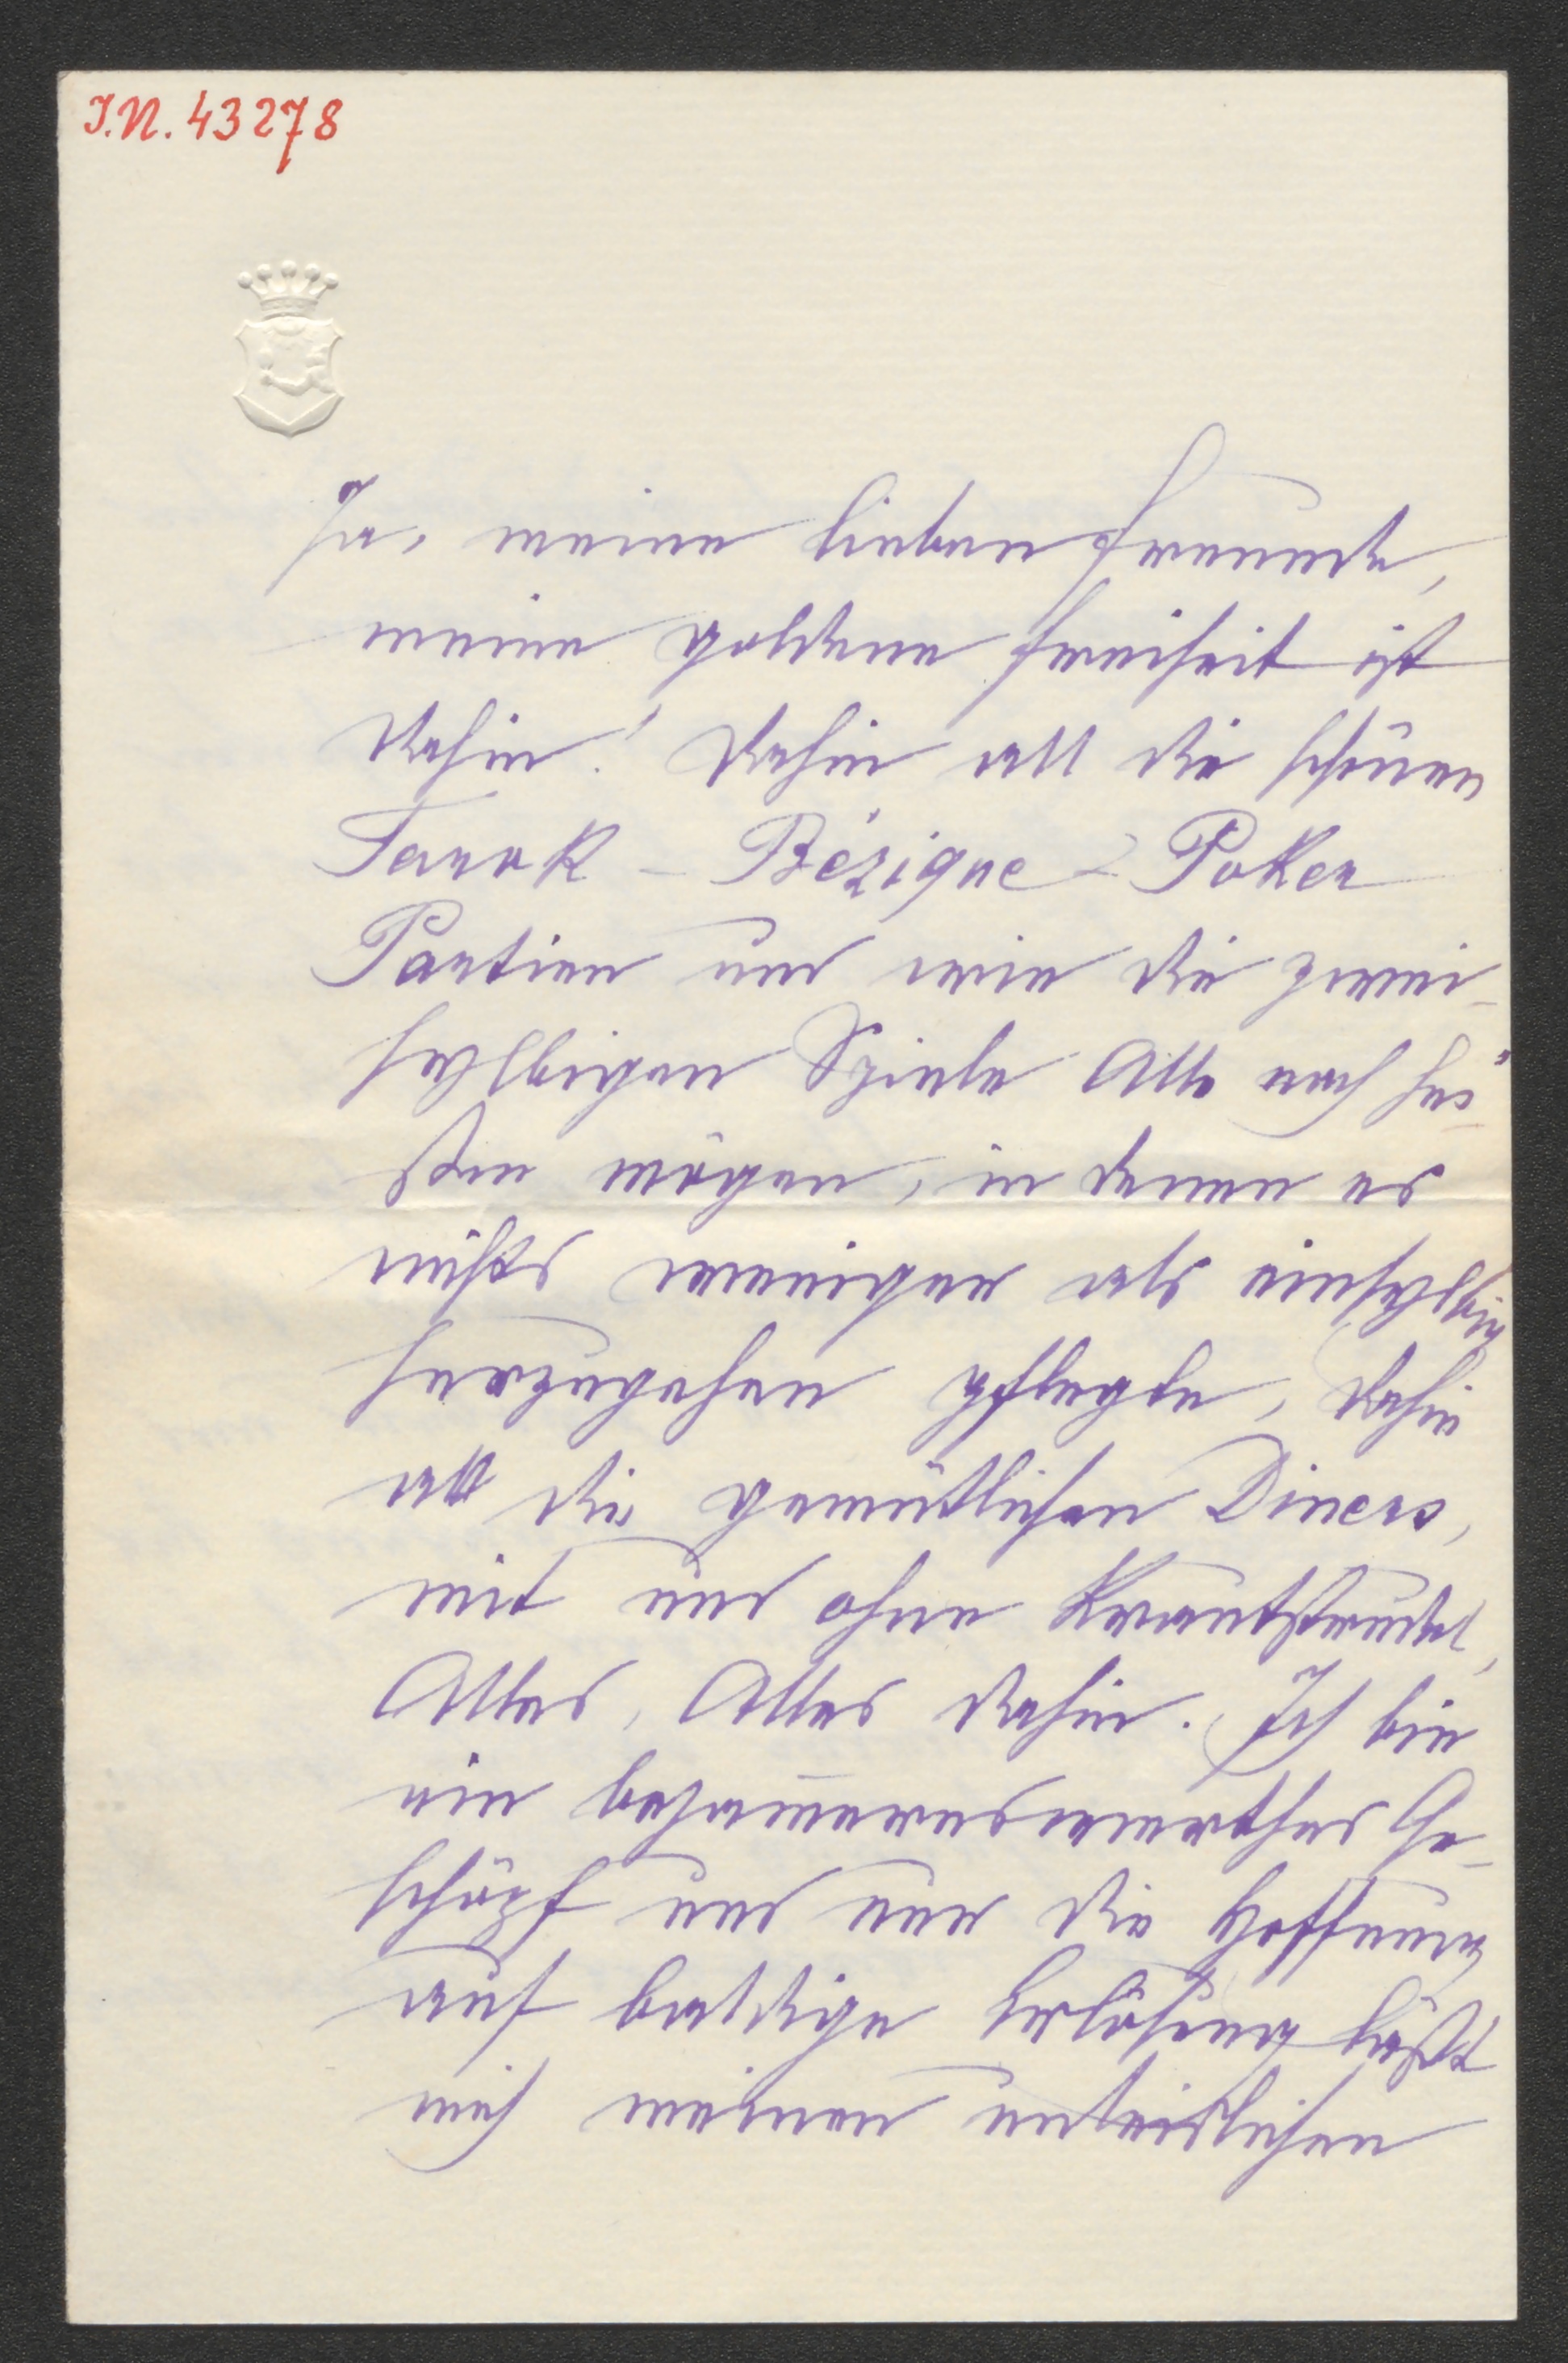 I.N. 43278
Ja, meine lieben Freunde,
meine goldene Freiheit ist
dahin! Dahin all die schönen
Tarok - Bézique - Poker
Partien und wie die zwei-
sylbigen Spiele Alle noch hei-
ßen mögen, in denen es
nichts weniger als einsylbig
herzugehen pflegte, dahin
all die gemütlichen Diners,
mit und ohne Krautstrudel,
Alles, Alles dahin. Ich bin
ein bejam̄ernswerthes Ge-
schöpf und nur die Hoffnung
auf baldige Erlösung läßt
mich meinen